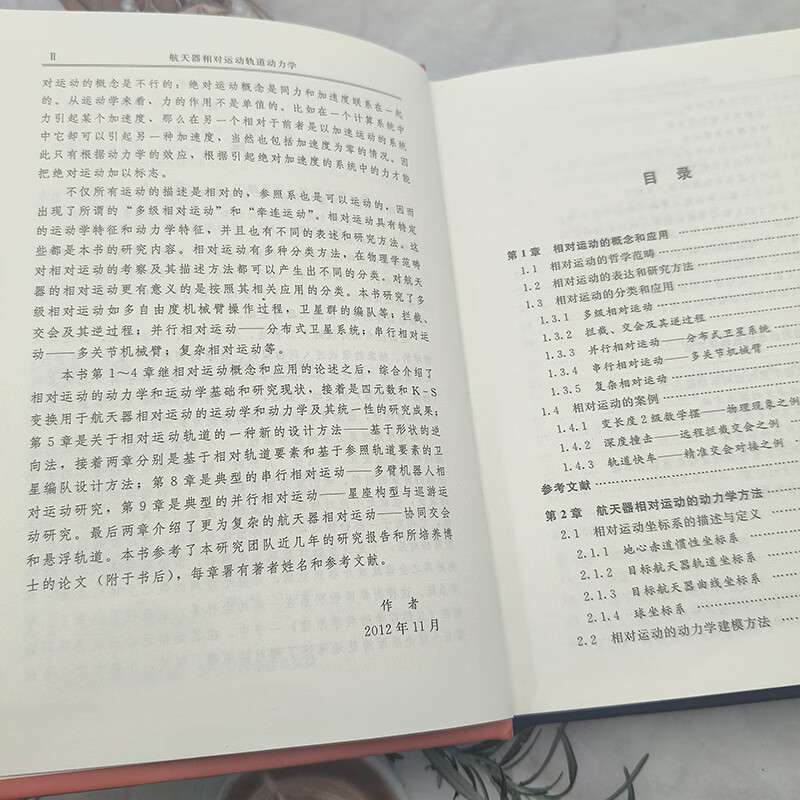 Ⅱ 航天器相对运动轨道动力学
对运动的概念是不行的；绝对运动概念是同力和加速度联系在一起
的。从运动学来看，力的作用不是单值的。比如在一个计算系统中
力引起某个加速度，那么在另一个相对于前者是以加速运动的系统
中它却可以引起另一种加速度，当然也包括加速度为零的情况。因
此只有根据动力学的效应，根据引起绝对加速度的系统中的力才能
把绝对运动加以标志。
不仅所有运动的描述是相对的，参照系也是可以运动的，因而
出现了所谓的“多级相对运动”和“牵连运动”。相对运动具有特定
的运动学特征和动力学特征，并且也有不同的表述和研究方法。这
些都是本书的研究内容。相对运动有多种分类方法，在物理学范畴
对相对运动的考察及其描述方法都可以产生出不同的分类。对航天
器的相对运动更有意义的是按照其相关应用的分类。本书研究了多
级相对运动如多自由度机械臂操作过程，卫星群的编队等；拦截、
交会及其逆过程；并行相对运动——分布式卫星系统；串行相对运
动——多关节机械臂；复杂相对运动等。
本书第1～4章继相对运动概念和应用的论述之后，综合介绍了
相对运动的动力学和运动学基础和研究现状，接着是四元数和K-S
变换用于航天器相对运动的运动学和动力学及其统一性的研究成果；
第5章是关于相对运动轨道的一种新的设计方法——基于形状的逆
向法，接着两章分别是基于相对轨道要素和基于参照轨道要素的卫
星编队设计方法；第8章是典型的串行相对运动——多臂机器人相
对运动研究，第9章是典型的并行相对运动——星座构型与巡游运
动研究。最后两章介绍了更为复杂的航天器相对运动——协同交会
和悬浮轨道。本书参考了本研究团队近几年的研究报告和所培养博
士的论文（附于书后），每章署有著者姓名和参考文献。
作 者
2012年11月
目 录
第1章 相对运动的概念和应用
1.1 相对运动的哲学范畴
1.2 相对运动的表达和研究方法
1.3 相对运动的分类和应用
1.3.1 多级相对运动
1.3.2 拦截、交会及其逆过程
1.3.3 并行相对运动——分布式卫星系统
1.3.4 串行相对运动——多关节机械臂
1.3.5 复杂相对运动
1.4 相对运动的案例
1.4.1 变长度2级数学摆——物理现象之例
1.4.2 深度撞击——远程拦截交会之例
1.4.3 轨道快车——精准交会对接之例
参考文献
第2章 航天器相对运动的动力学方法
2.1 相对运动坐标系的描述与定义
2.1.1 地心赤道惯性坐标系
2.1.2 目标航天器轨道坐标系
2.1.3 目标航天器曲线坐标系
2.1.4 球坐标系
2.2 相对运动的动力学建模方法